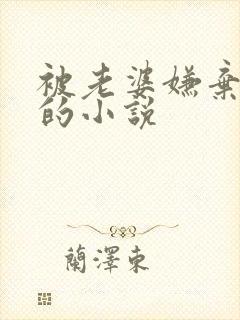 被老婆嫌棄
的小說
蘭澤東